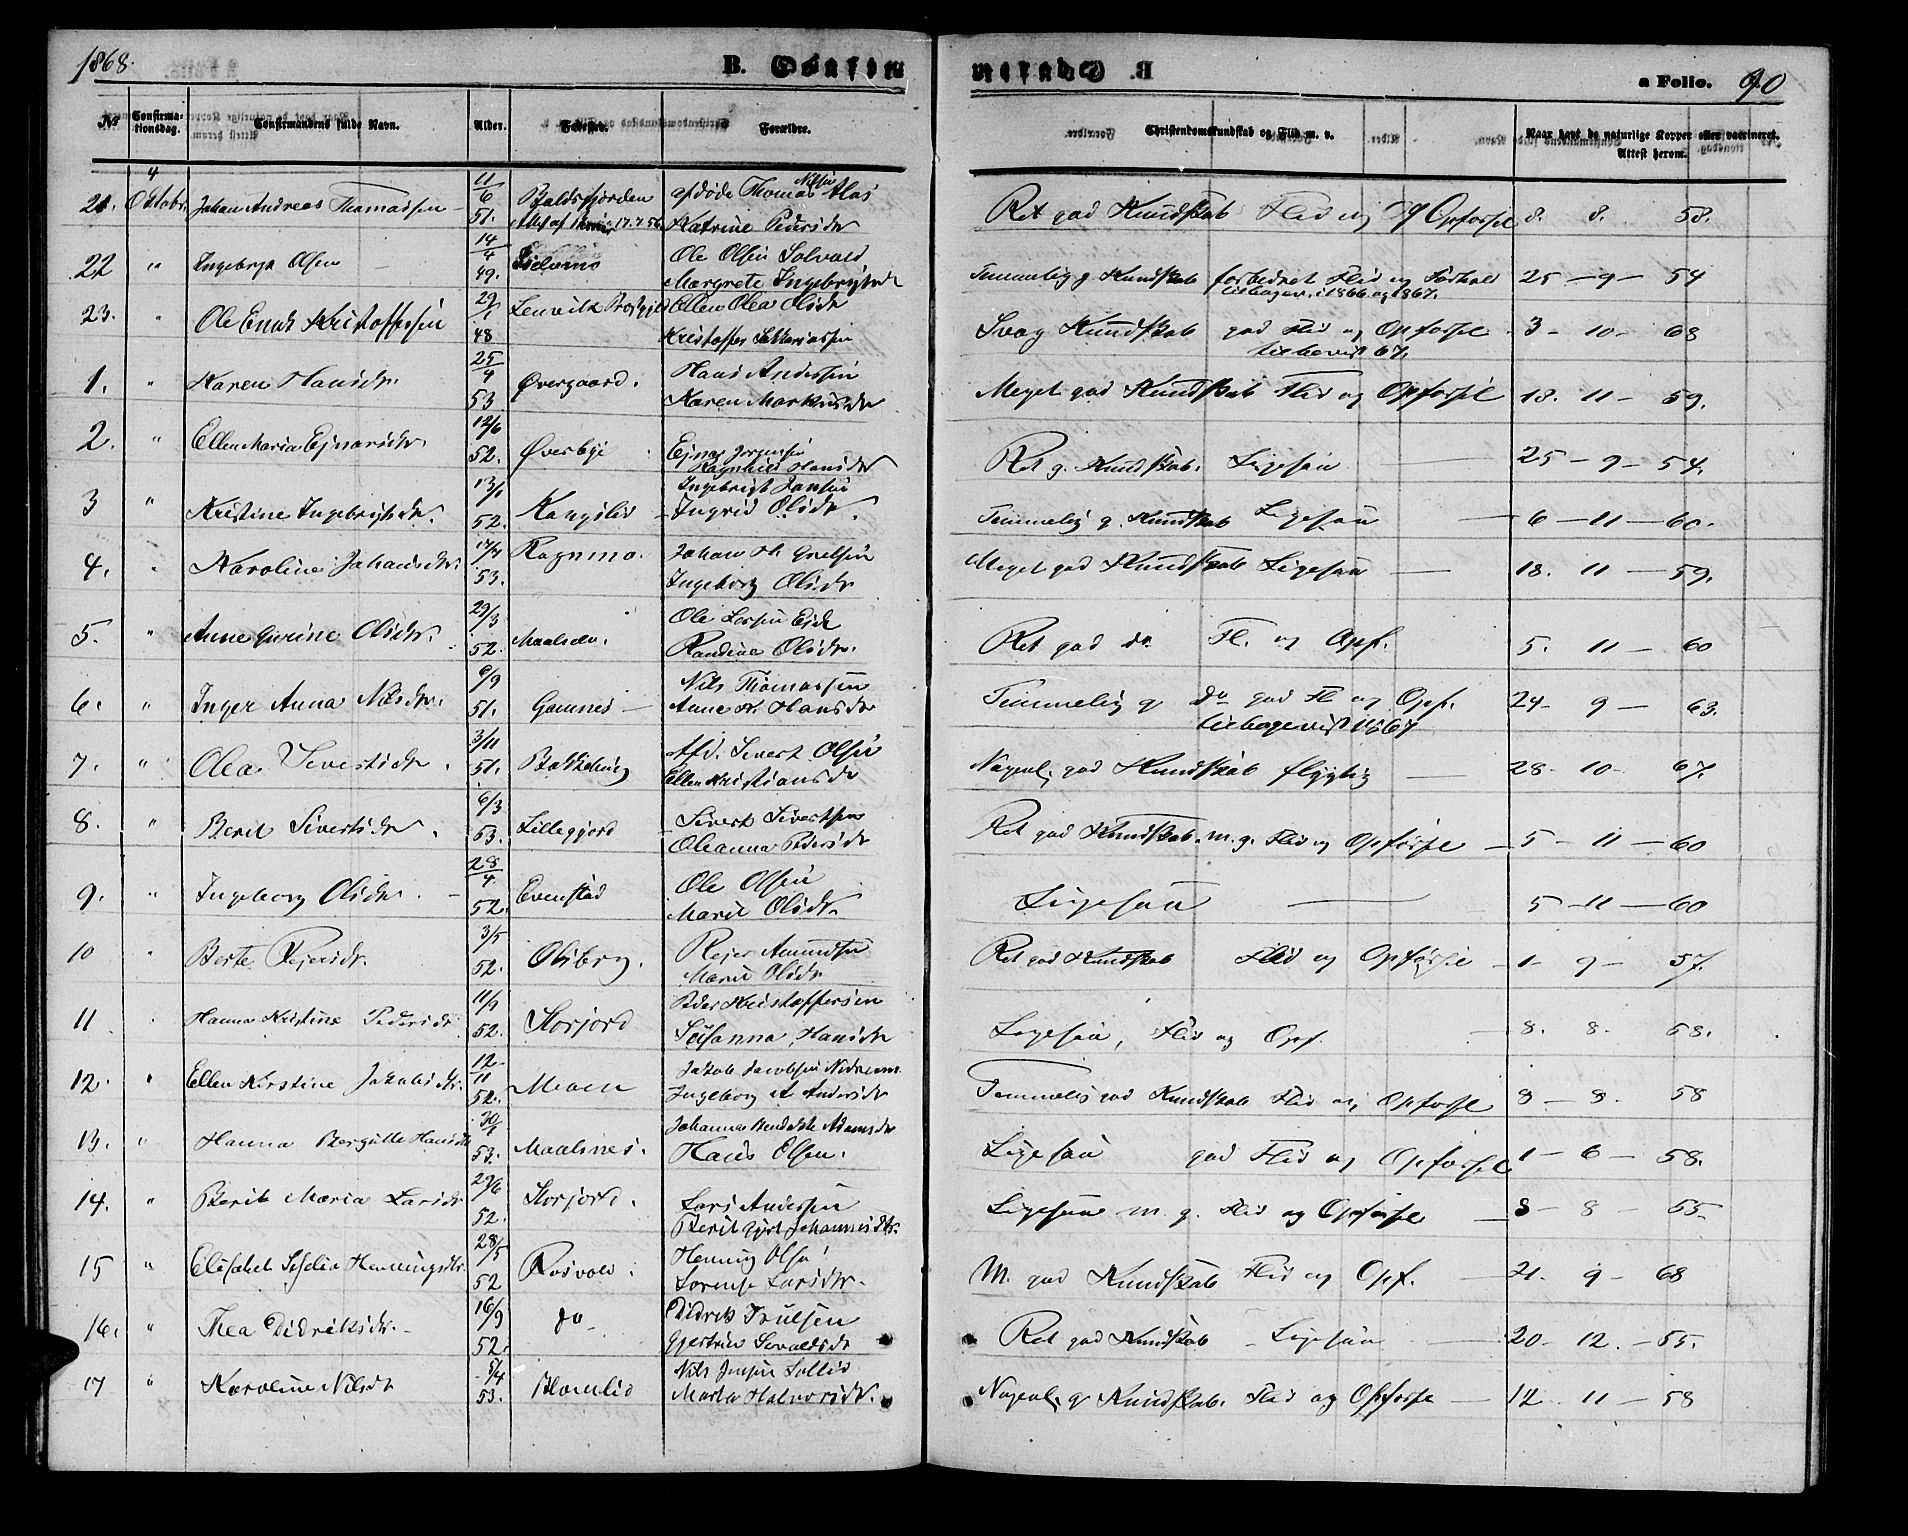 1868.
B. Confirm
a Folio. 90
No
Confirmationsdag.
Confirmandens fulde Navn.
Alder.
Fødested.
Forældre.
Christendomskundskab og Flid m. v.
Naar havt de naturlige Kopper eller vaccineret. Attest herom.
21. 4 Oktobr. Johan Andreas Thomassen 11/6 51. Baldsfjorden afdøde Thomas Nilsen
Katrine Pedersdr Ret god Kundskab Flid og Opførsel 8. 8. 58.
22 " Ingeborg Olsen 14/4 49. Ole Olsen Solvold
Margrete Ingebrigtsdr Temmelig g. Kundskab forbedret Flid og Forhold 25 - 9 - 54
i 1866 og 1867.
23. " Ole Enok Kristoffersen 29/1 48 Lenvik Ellen Olea Olsdr
Kristoffer Sakkariassen Svag Kundskab god Flid og Opførsel 3 - 10 - 68
67.
1. " Karen Hansdr. 25/4 53 Øvergaard. Hans Andersen
Karen Markusdr Meget god Kundskab Flid og Opførsel 18. 11 - 59.
2. " Ellen Maria Ejnarsdr. 12/6 52. Øverbye Ejnar Jørgensen
Ragnhild Hansdr Ret g. Kundskab. Ligesaa 25 - 9 - 54.
3 " Kristine Ingebrigtsdr. 13/1 52. Kongslid Ingebrigt Jonsen
Ingrid Olsdr. Temmelig g. Kundskab Ligesaa 6 - 11 - 60.
4. " Karoline Johansdr. 53. Rognmo. Johan
Ingeborg Olsdr Meget god Kundskab Ligesaa 18. 11 - 59.
5. " Anne Gurine Olsdr. 29/3 52. Maalselv. Ole Larsen Eide
Randine Olsdr. Ret god do Fl. og Opf. 5. 11 - 60
6. " Inger Anna Nilsdr. 6/9 51. Gamnes Nils Thomassen
Anne H. Hansdr Temmelig g do god Fl og Opf. 24 - 9 - 63.
tilbagevist 1867
7. " Olea Sivertsdr. 3/11 51. Bakkehaug Afd. Sivert Olsen
Ellen Kristiansdr Nogenl. god Kundskab flygtig 28 - 10 - 67.
8. " Berit Sivertsdr. 6/3 53. Lillegjord Sivert Sivertsen
Oleanna Pedersdr Ret god Kundskab. m. g. Flid og Opførsel 5 - 11 - 60
9. " Ingeborg Olsdr. 28/4 52. Evenstad Ole Olsen
Marit Olsdr. Ligesaa 5 - 11 - 60
10 " Berte Rejersdr. 3/5 52. Olsborg. Rejer Amundsen
Marit Olsdr Ret god Kundskab Flid og Opførsel 1 - 9 - 57.
11 " Hanna Kristine Pedersdr 11/9 52. Storjord Peder Kristoffersen
Susanna Hansdr Ligesaa, Flid og Opf. 8. 8. 58.
12. " Ellen Kirstine Jakobsdr. 12/11 52. Moen Jakob Jacobsen
Ingeborg A Andersdr Temmelig god Kundskab Flid og Opførsel 8 - 8. 58
13. " Hanna Bergitte Hansdr 30/1 53. Maalsnes. Johanna Bendikte Adamsdr
Hans Olsen. Ligesaa god Flid og Opførsel 1 - 6 - 58.
14. " Berit Maria Larsdr 29/6 52. Storjord. Lars Andersen
Berit Gjert Johannesdtr. Ligesaa m. g. Flid og Opførsel 8 - 8 - 65.
15 " Elisabet Henningsdtr. 28/5 52 Rosvold. Henning Olsen
Lorense Larsdtr. M. god Kundskab Flid og Opf. 21. 9 - 68
16. " Thea Didriksdr. 16/9 52. do Didrik Trulsen
Gjertrud Sivaldsdr Ret god Kundskab - Ligesaa 20 - 12. - 55.
17 " Karoline Nilsdr 5/4 53. Blomlid Nils Jensen
Marta Halvorsdr. Nogenl. g Kundskab. Flid og Opførsel 12 - 11 - 58